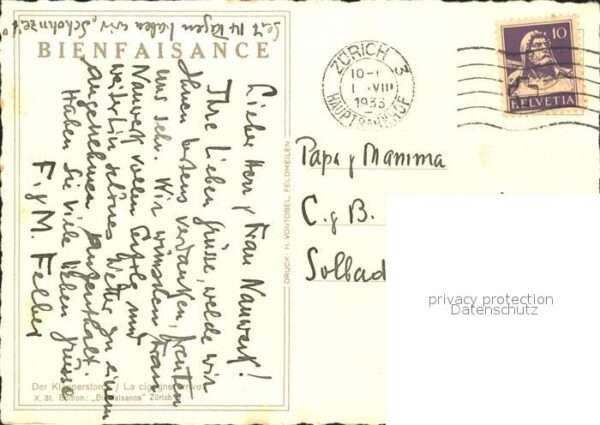 Seit 14 Tagen haben wir „Schohnzeit"
BIENFAISANCE
Liebe Herr & Frau Nauwerk!
Ihre lieben Grüsse, welche wir
Ihnen bestens verdanken, freuten
uns sehr. Wir wünschen Frau
Nauwerk vollen Erfolg und
weiterhin schönes Wetter zu einem
angenehmen Aufenthalt.
Haben Sie viele lieben Grüsse
F. & M. Felber
Der Klapperstorch / La cigogne arrive
X. 31. Edition: „Bienfaisance" Zürich
DRUCK: H. VONTOBEL, FELDMEILEN
ZÜRICH 3
10-
1. VIII
1933
HAUPTBAHNHOF
10
HELVETIA
Papa & Mamma
C. & B.
Solbad
privacy protection
Datenschutz